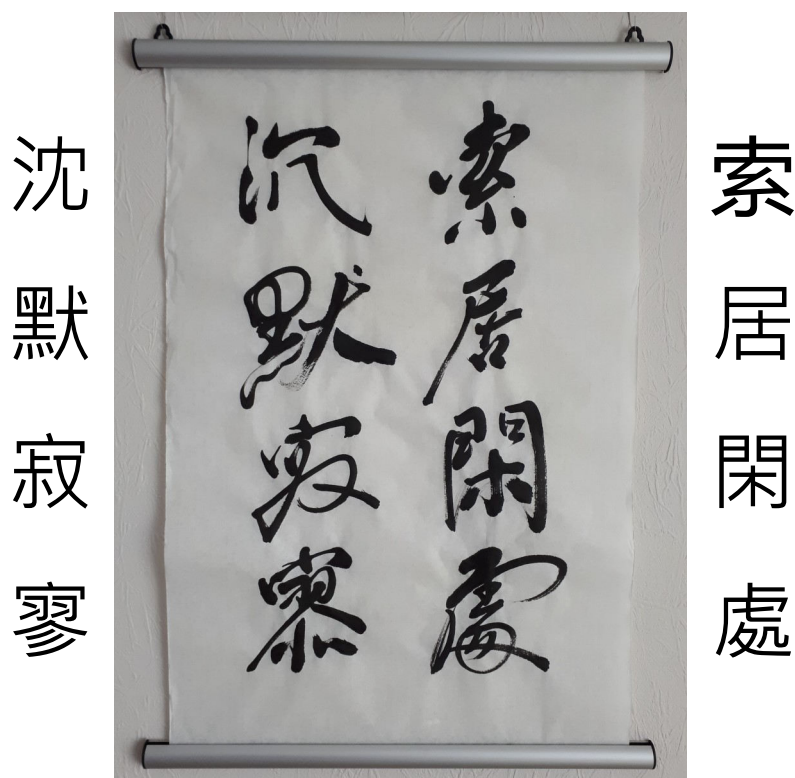 索居閑處
索居閑處
沉默寂寥
沈默寂寥